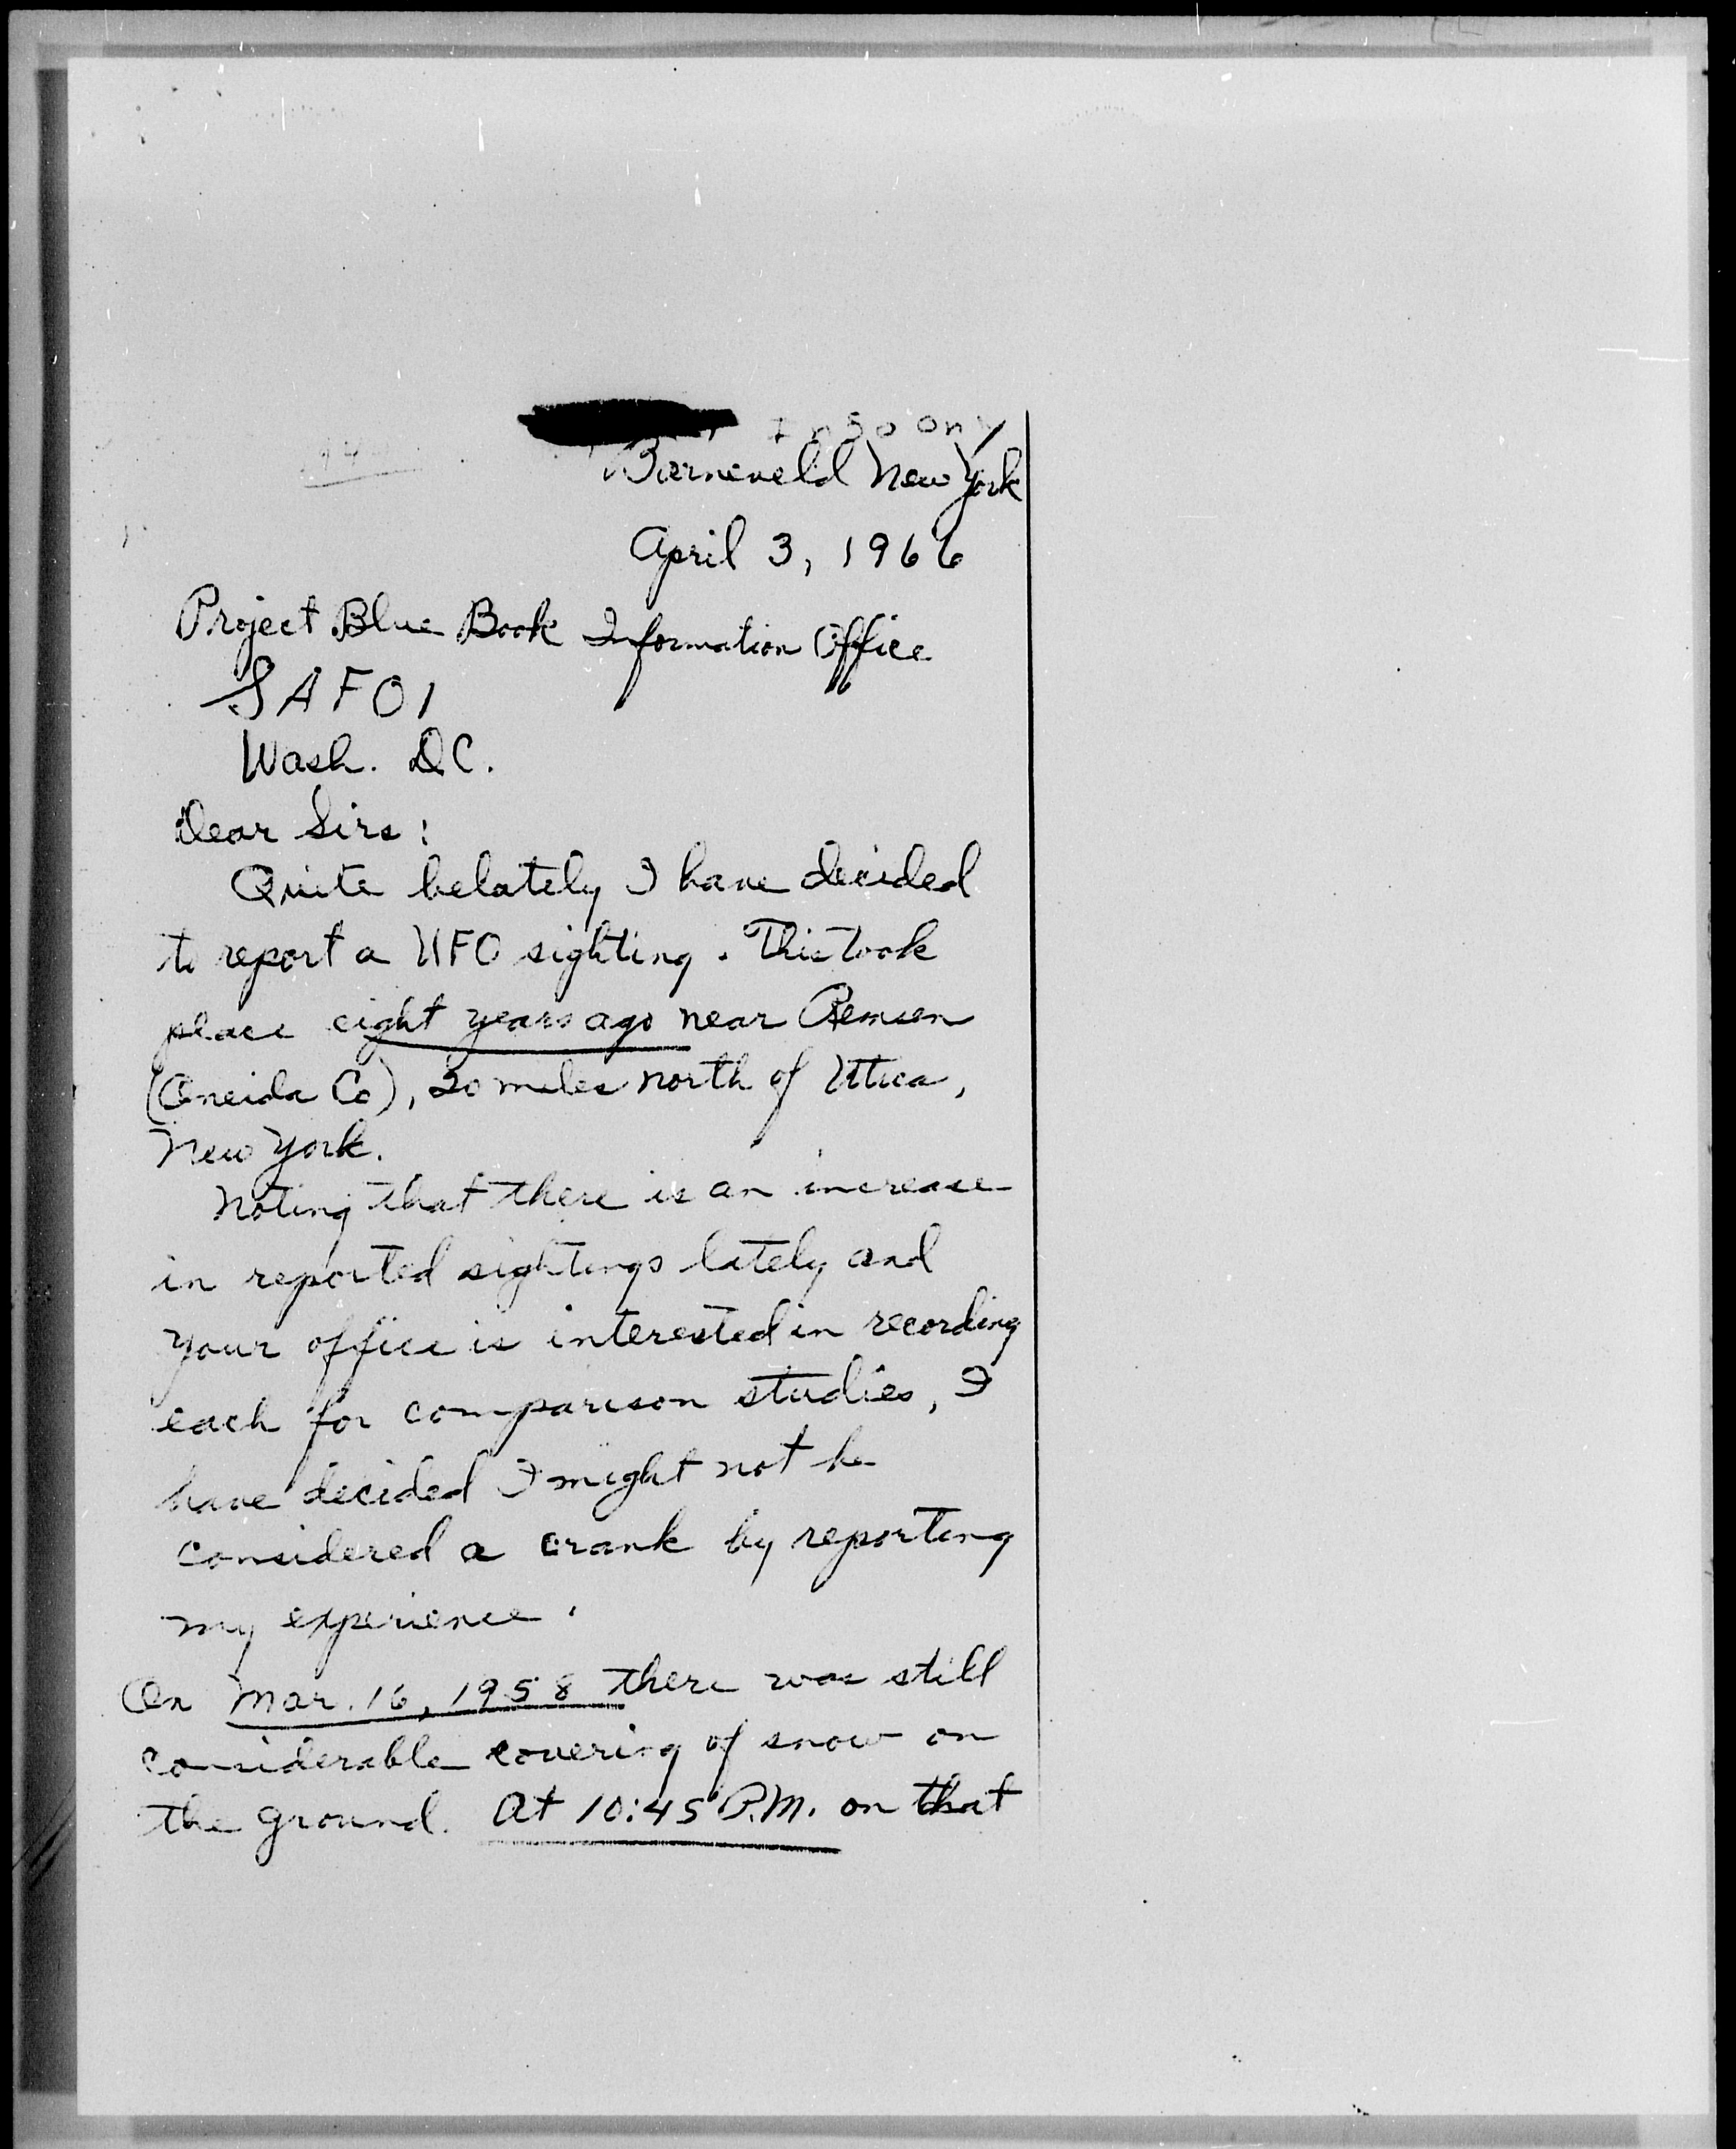 Info Only
Barneveld New York
April 3, 1966
Project Blue Book Information Office
SAFOI
Wash. D.C.
Dear Sirs:
Quite belately I have decided
to report a UFO sighting. This took
place eight years ago near Remsen
(Oneida Co), 20 miles north of Utica,
New York.
Noting that there is an increase
in reported sightings lately and
your office is interested in recording
each for comparison studies, I
have decided I might not be
considered a crank by reporting
my experience.
On Mar. 16, 1958 there was still
considerable covering of snow on
the ground. At 10:45 P.M. on that